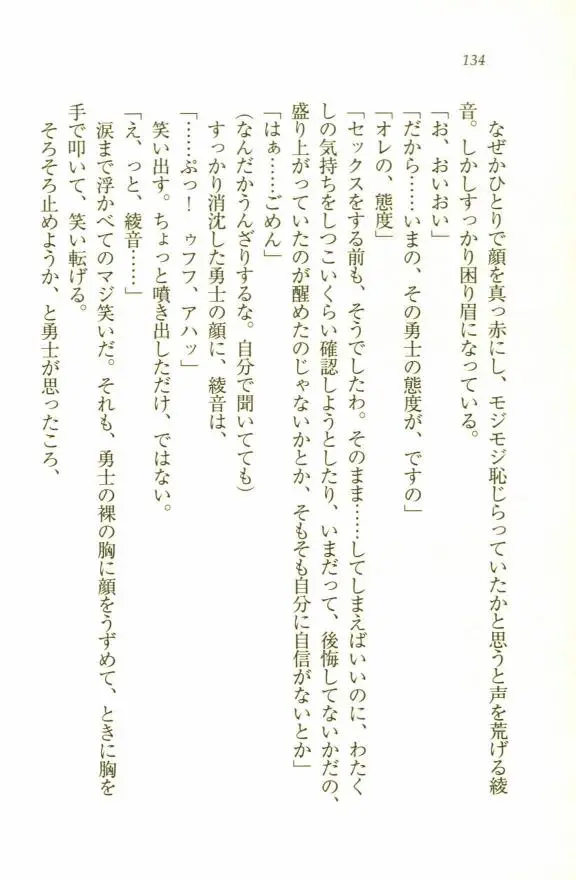 134
なぜかひとりで顔を真っ赤にし、モジモジ恥じらっていたかと思うと声を荒げる綾
音。しかしすっかり困り眉になっている。
「お、おいおい」
「だから……いまの、その勇士の態度が、ですの」
「オレの、態度」
「セックスをする前も、そうでしたわ。そのまま……してしまえばいいのに、わたく
しの気持ちをしつこいくらい確認しようとしたり、いまだって、後悔してないかだの、
盛り上がっていたのが醒めたのじゃないかとか、そもそも自分に自信がないとか」
「はぁ……ごめん」
（なんだかうんざりするな。自分で聞いてても）
すっかり消沈した勇士の顔に、綾音は、
「……ぷっ！　ゥフフ、アハッ」
笑い出す。ちょっと噴き出しただけ、ではない。
「え、っと、綾音……」
涙まで浮かべてのマジ笑いだ。それも、勇士の裸の胸に顔をうずめて、ときに胸を
手で叩いて、笑い転げる。
そろそろ止めようか、と勇士が思ったころ、